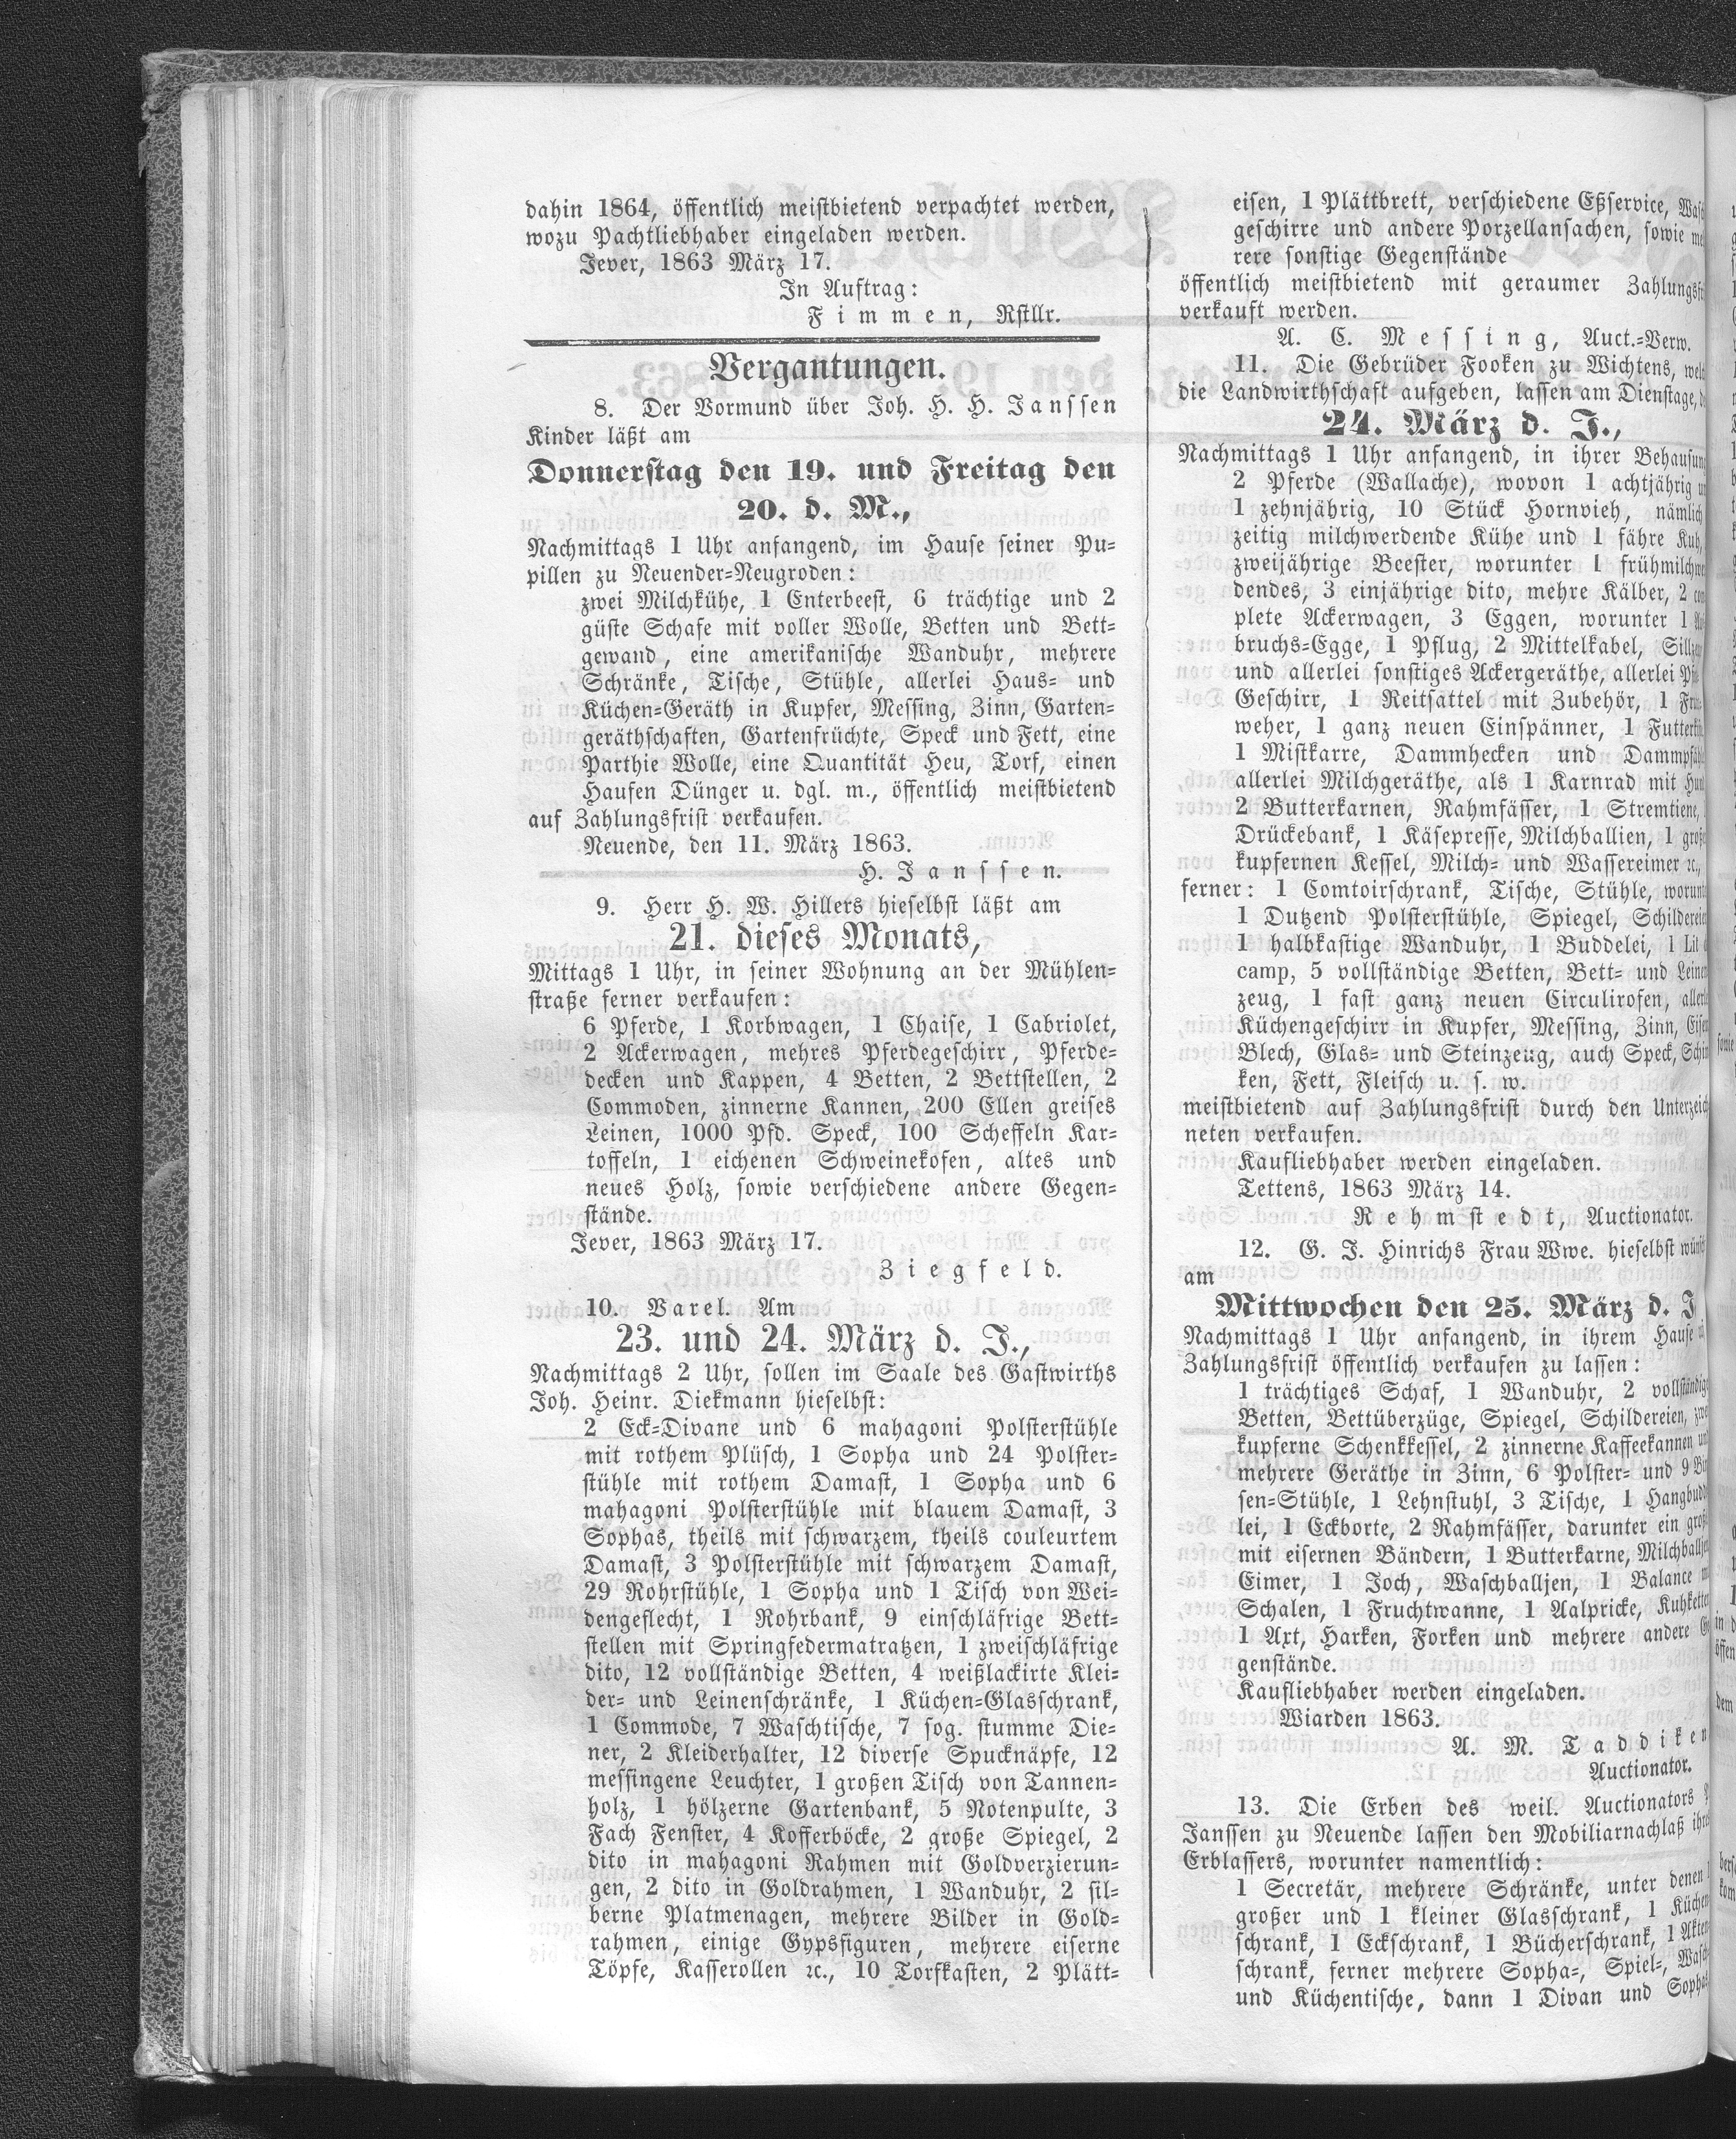 dahin 1864, öffentlich meistbietend verpachtet werden,
wozu Pachtliebhaber eingeladen werden.
Jever, 1863 März 17.
In Auftrag:
Fimmen, Rstllr.
Vergantungen.
8. Der Vormund über Joh. H. H. Janssen
Kinder läßt am
Donnerstag den 19. und Freitag den
20. d. M.,
Nachmittags 1 Uhr anfangend, im Hause seiner Pu-
pillen zu Neuender-Neugroden:
zwei Milchkühe, 1 Enterbeest, 6 trächtige und 2
güste Schafe mit voller Wolle, Betten und Bett-
gewand, eine amerikanische Wanduhr, mehrere
Schränke, Tische, Stühle, allerlei Haus- und
Küchen-Geräth in Kupfer, Messing, Zinn, Garten-
geräthschaften, Gartenfrüchte, Speck und Fett, eine
Parthie Wolle, eine Quantität Heu, Torf, einen
Haufen Dünger u. dgl. m., öffentlich meistbietend
auf Zahlungsfrist verkaufen.
Neuende, den 11. März 1863.
H. Janssen.
9. Herr H. W. Hillers hieselbst läßt am
21. dieses Monats,
Mittags 1 Uhr, in seiner Wohnung an der Mühlen-
straße ferner verkaufen:
6 Pferde, 1 Korbwagen, 1 Chaise, 1 Cabriolet,
2 Ackerwagen, mehres Pferdegeschirr, Pferde-
decken und Kappen, 4 Betten, 2 Bettstellen, 2
Commoden, zinnerne Kannen, 200 Ellen greises
Leinen, 1000 Pfd. Speck, 100 Scheffeln Kar-
toffeln, 1 eichenen Schweinekofen, altes und
neues Holz, sowie verschiedene andere Gegen-
stände.
Jever, 1863 März 17.
Ziegfeld.
10. Varel. Am
23. und 24. März d. J.,
Nachmittags 2 Uhr, sollen im Saale des Gastwirths
Joh. Heinr. Diekmann hieselbst:
2 Eck-Divane und 6 mahagoni Polsterstühle
mit rothem Plüsch, 1 Sopha und 24 Polster-
stühle mit rothem Damast, 1 Sopha und 6
mahagoni Polsterstühle mit blauem Damast, 3
Sophas, theils mit schwarzem, theils couleurtem
Damast, 3 Polsterstühle mit schwarzem Damast,
29 Rohrstühle, 1 Sopha und 1 Tisch von Wei-
dengeflecht, 1 Rohrbank, 9 einschläfrige Bett-
stellen mit Springfedermatratzen, 1 zweischläfrige
dito, 12 vollständige Betten, 4 weißlackirte Klei-
der- und Leinenschränke, 1 Küchen-Glasschrank,
1 Commode, 7 Waschtische, 7 sog. stumme Die-
ner, 2 Kleiderhalter, 12 diverse Spucknäpfe, 12
messingene Leuchter, 1 großen Tisch von Tannen-
holz, 1 hölzerne Gartenbank, 5 Notenpulte, 3
Fach Fenster, 4 Kofferböcke, 2 große Spiegel, 2
dito in mahagoni Rahmen mit Goldverzierun-
gen, 2 dito in Goldrahmen, 1 Wanduhr, 2 sil-
berne Platmenagen, mehrere Bilder in Gold-
rahmen, einige Gypsfiguren, mehrere eiserne
Töpfe, Kasserollen ꝛc., 10 Torfkasten, 2 Plätt-
eisen, 1 Plättbrett, verschiedene Eßservice,
geschirre und andere Porzellansachen, sowie
rere sonstige Gegenstände
öffentlich meistbietend mit geraumer
verkauft werden.
A. C. Messing, Auct.-Verw.
11. Die Gebrüder Fooken zu Wichtens,
die Landwirthschaft aufgeben, lassen am Dienstage,
24. März d. J.,
Nachmittags 1 Uhr anfangend, in ihrer
2 Pferde (Wallache), wovon 1 achtjährig
1 zehnjährig, 10 Stück Hornvieh, nämlich
zeitig milchwerdende Kühe und 1 fähre Kuh,
zweijährige Beester, worunter 1
dendes, 3 einjährige dito, mehre Kälber, 2
plete Ackerwagen, 3 Eggen, worunter 1
bruchs-Egge, 1 Pflug, 2 Mittelkabel,
und allerlei sonstiges Ackergeräthe, allerlei
Geschirr, 1 Reitsattel mit Zubehör, 1
weher, 1 ganz neuen Einspänner, 1
1 Mistkarre, Dammhecken und
allerlei Milchgeräthe, als 1 Karnrad mit
2 Butterkarnen, Rahmfässer, 1 Stremtiene,
Drückebank, 1 Käsepresse, Milchballien, 1
kupfernen Kessel, Milch- und Wassereimer ꝛc.,
ferner: 1 Comtoirschrank, Tische, Stühle,
1 Dutzend Polsterstühle, Spiegel,
1 halbkastige Wanduhr, 1 Buddelei, 1
camp, 5 vollständige Betten, Bett- und
zeug, 1 fast ganz neuen Circulirofen,
Küchengeschirr in Kupfer, Messing, Zinn,
Blech, Glas- und Steinzeug, auch Speck,
ken, Fett, Fleisch u. s. w.
meistbietend auf Zahlungsfrist durch den
neten verkaufen.
Kaufliebhaber werden eingeladen.
Tettens, 1863 März 14.
Rehmstedt, Auctionator.
12. G. J. Hinrichs Frau Wwe. hieselbst
am
Mittwochen den 25. März d. J
Nachmittags 1 Uhr anfangend, in ihrem Hause
Zahlungsfrist öffentlich verkaufen zu lassen:
1 trächtiges Schaf, 1 Wanduhr, 2
Betten, Bettüberzüge, Spiegel, Schildereien,
kupferne Schenkkessel, 2 zinnerne Kaffeekannen
mehrere Geräthe in Zinn, 6 Polster- und 9
sen-Stühle, 1 Lehnstuhl, 3 Tische, 1
lei, 1 Eckborte, 2 Rahmfässer, darunter ein
mit eisernen Bändern, 1 Butterkarne,
Eimer, 1 Joch, Waschballjen, 1 Balance
Schalen, 1 Fruchtwanne, 1 Aalpricke,
1 Axt, Harken, Forken und mehrere andere
genstände.
Kaufliebhaber werden eingeladen.
Wiarden 1863.
A. M. Taddiken
Auctionator.
13. Die Erben des weil. Auctionators
Janssen zu Neuende lassen den Mobiliarnachlaß
Erblassers, worunter namentlich:
1 Secretär, mehrere Schränke, unter denen
großer und 1 kleiner Glasschrank, 1
schrank, 1 Eckschrank, 1 Bücherschrank, 1
schrank, ferner mehrere Sopha-, Spiel-,
und Küchentische, dann 1 Divan und